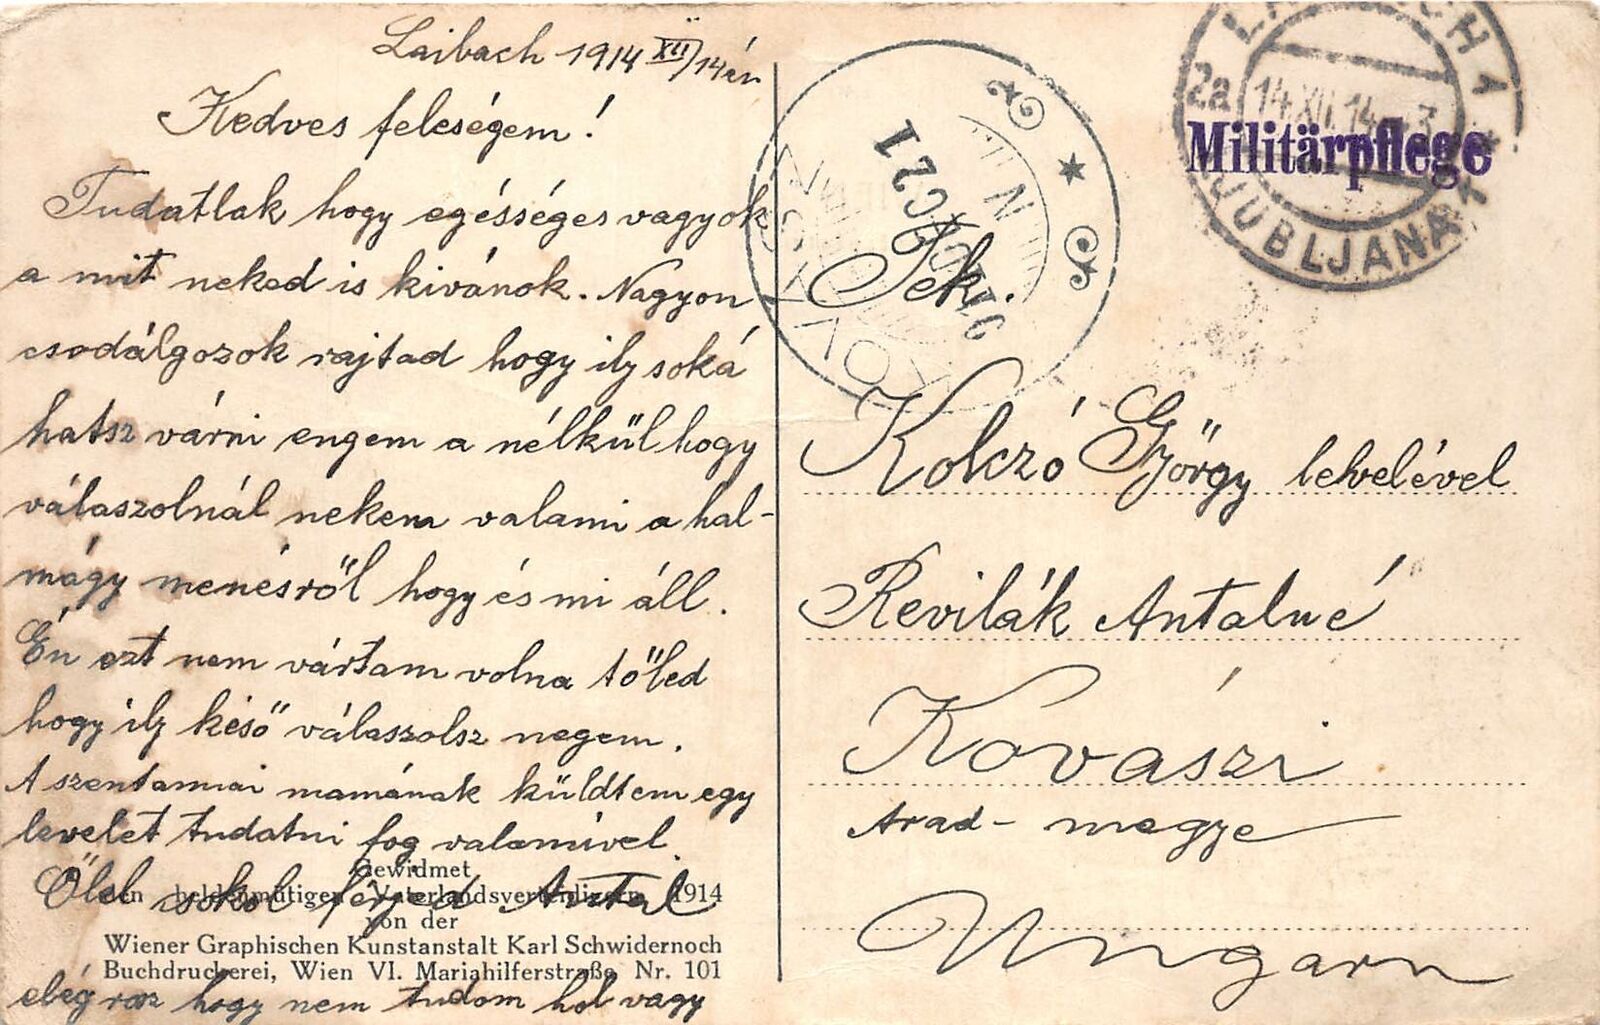 Laibach 1914 XII/14én
Kedves feleségem!
Tudatlak hogy egésséges vagyok
a mit neked is kivánok. Nagyon
csodálgozok rajtad hogy ily soká
hatsz várni engem a nélkül hogy
válaszolnál nekem valami a hal-
mágy menésről hogy és mi áll.
Én ezt nem vártam volna tőled
hogy ily késő válaszolsz negem.
A szentannai mamának küldtem egy
levelet tudatni fog valamivel.
Ölel sokol férjed Antal
elég rosz hogy nem tudom hol vagy
Gewidmet
den heldenmütigen Vaterlandsverteidigern 1914
von der
Wiener Graphischen Kunstanstalt Karl Schwidernoch
Buchdruckerei, Wien VI. Mariahilferstraße Nr. 101
LAIBACH 1
2a
14.XII.14
LJUBLJANA 1
Militärpflege
914 DEC 21
Teki.
Kolczó György lehvelével
Revilák Antalné
Kovászi
Arad-megye
Ungarn